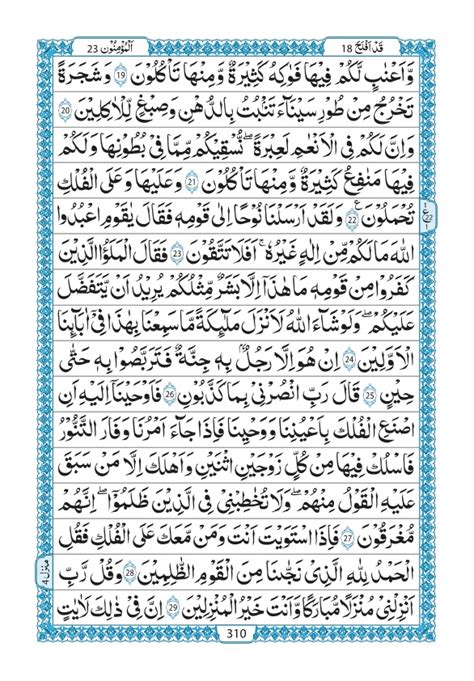 قَدْ اَفْلَحَ 18
اَلْمُؤْمِنُوْن 23
وَّاَعْنٰبٍ لَّكُمْ فِيْهَا فَوٰكِهُ كَثِيْرَةٌ وَّمِنْهَا تَأْكُلُوْنَ ۙ 19 وَشَجَرَةً
تَخْرُجُ مِنْ طُوْرِ سَيْنَآءَ تَنْۢبُتُ بِالدُّهْنِ وَصِبْغٍ لِّلْاٰكِلِيْنَ 20
وَاِنَّ لَكُمْ فِى الْاَنْعٰمِ لَعِبْرَةً ۖ نُسْقِيْكُمْ مِّمَّا فِىْ بُطُوْنِهَا وَلَكُمْ
فِيْهَا مَنٰفِعُ كَثِيْرَةٌ وَّمِنْهَا تَأْكُلُوْنَ ۙ 21 وَعَلَيْهَا وَعَلَى الْفُلْكِ
تُحْمَلُوْنَ ۧ 22 وَلَقَدْ اَرْسَلْنَا نُوْحًا اِلٰى قَوْمِهٖ فَقَالَ يٰقَوْمِ اعْبُدُوا
اللّٰهَ مَا لَكُمْ مِّنْ اِلٰهٍ غَيْرُهٗ ۚ اَفَلَا تَتَّقُوْنَ 23 فَقَالَ الْمَلَؤُا الَّذِيْنَ
كَفَرُوْا مِنْ قَوْمِهٖ مَا هٰذَاۤ اِلَّا بَشَرٌ مِّثْلُكُمْ يُرِيْدُ اَنْ يَّتَفَضَّلَ
عَلَيْكُمْ ۖ وَلَوْ شَآءَ اللّٰهُ لَاَنْزَلَ مَلٰٓئِكَةً مَّا سَمِعْنَا بِهٰذَا فِىْۤ اٰبَآئِنَا
الْاَوَّلِيْنَ ۚ 24 اِنْ هُوَ اِلَّا رَجُلٌۢ بِهٖ جِنَّةٌ فَتَرَبَّصُوْا بِهٖ حَتّٰى
حِيْنٍ 25 قَالَ رَبِّ انْصُرْنِىْ بِمَا كَذَّبُوْنِ 26 فَاَوْحَيْنَاۤ اِلَيْهِ اَنِ
اصْنَعِ الْفُلْكَ بِاَعْيُنِنَا وَوَحْيِنَا فَاِذَا جَآءَ اَمْرُنَا وَفَارَ التَّنُّوْرُ ۙ
فَاسْلُكْ فِيْهَا مِنْ كُلٍّ زَوْجَيْنِ اثْنَيْنِ وَاَهْلَكَ اِلَّا مَنْ سَبَقَ
عَلَيْهِ الْقَوْلُ مِنْهُمْ ۖ وَلَا تُخٰطِبْنِىْ فِى الَّذِيْنَ ظَلَمُوْا ۖ اِنَّهُمْ
مُّغْرَقُوْنَ 27 فَاِذَا اسْتَوَيْتَ اَنْتَ وَمَنْ مَّعَكَ عَلَى الْفُلْكِ فَقُلِ
الْحَمْدُ لِلّٰهِ الَّذِىْ نَجّٰىنَا مِنَ الْقَوْمِ الظّٰلِمِيْنَ 28 وَقُلْ رَّبِّ
اَنْزِلْنِىْ مُنْزَلًا مُّبٰرَكًا وَّاَنْتَ خَيْرُ الْمُنْزِلِيْنَ 29 اِنَّ فِىْ ذٰلِكَ لَاٰيٰتٍ
منزل 4
310